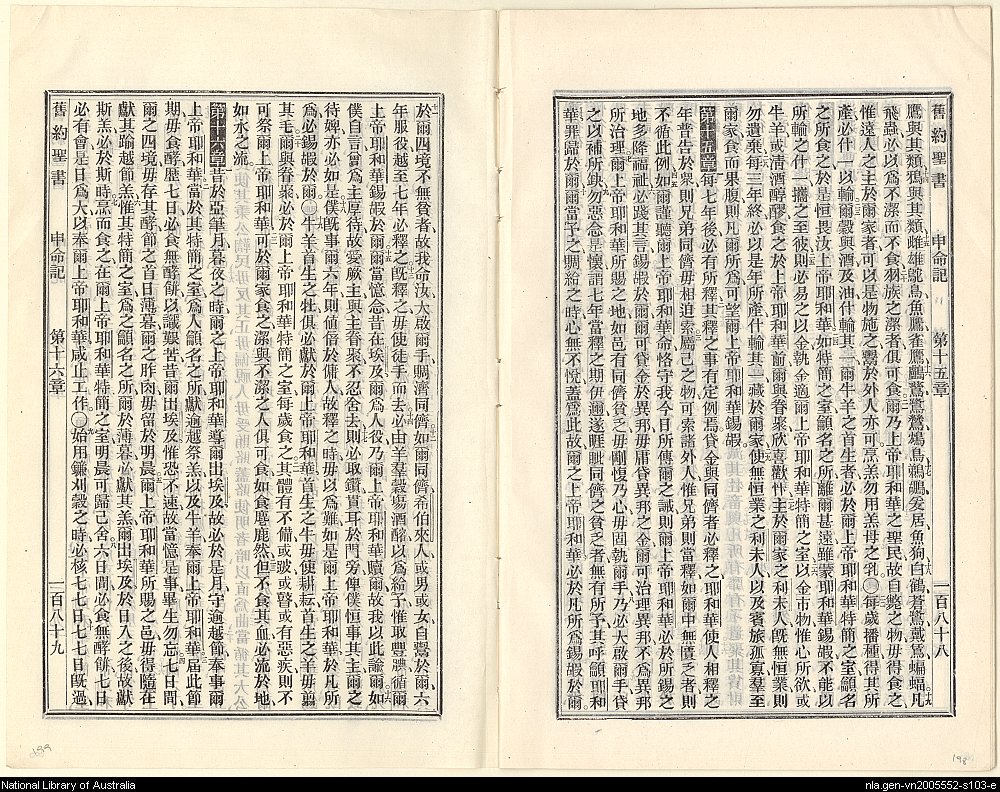 舊約聖書　申命記　第十五章　一百八十八
惟遠人之主於爾家者可以是物施之鬻於外人亦可烹羔勿用羔母之乳〇每歲播種得其所
產必什一以輸爾穀與酒及油什輸其一爾牛羊之首生者必於爾上帝耶和華特簡之室籲名
之所食之於是恒畏汝上帝耶和華如特簡之室籲名之所離爾甚遠雖蒙耶和華錫嘏不能以
所輸之什一攜之至彼則必易之以金執金適爾上帝耶和華特簡之室以金市物惟心所欲或
牛羊或清酒醇醪食之於上帝耶和華前爾與眷聚欣喜歡忭主於爾家之利未人旣無恒業則
勿遺棄每三年終必以是年所產什輸其一藏於爾家使無恒業之利未人以及賓旅孤寡羣至
爾家食而果腹則凡爾所為可望爾上帝耶和華錫嘏
第十五章每七年後必有所釋其釋之事有定例焉貸金與同儕者必釋之耶和華使人相釋之
年昔告於衆則兄弟同儕毋相迫索屬己之物可索諸外人惟兄弟則當釋如爾中無匱乏者則
不循此例如爾謹聽爾上帝耶和華命恪守我今日所傳爾之誡則爾上帝耶和華必於所錫之
地多降福祉必踐其言錫嘏於爾爾可貸金於異邦毋庸貸異邦之金爾可治理異邦不為異邦
所治理爾上帝耶和華所賜之地如邑有同儕貧乏毋剛愎乃心毋固執爾手乃必大啟爾手貸
之以補所缺勿惡念是懷謂七年當釋之期伊邇遂睚眦同儕之貧乏者無有所予其呼籲耶和
華罪歸於爾爾當予之賙給之時心無不悅蓋為此故爾之上帝耶和華必於凡所為錫嘏於爾
於爾四境不無貧者故我命汝大啟爾手賙濟同儕如爾同儕希伯來人或男或女自鬻於爾六
年服役越至七年必釋之旣釋之毋使徒手而去必由羊羣穀場酒醡以為給予惟取豐腆循爾
上帝耶和華錫嘏於爾爾當憶念昔在埃及爾為人役乃爾上帝耶和華贖爾故我以此諭爾如
僕自言爾為主厚待故愛厥主與主眷聚不忍舍去則必取鑽貫耳於門旁俾僕恒事其主之
待婢亦必如是僕旣事爾六年則値倍於傭人故釋之時毋以為難如是爾上帝耶和華必於凡所
為必錫嘏於爾〇牛羊首生之牡俱必獻於爾上帝耶和華首生之牛毋使耕耘首生之羊毋翦
其毛爾與眷聚必於爾上帝耶和華特簡之室每歲食之其體有不備或跛或瞽或有惡疾則不
可祭爾上帝耶和華可於爾家食之潔與不潔之人俱可食如食麀鹿然但不食其血必流於地
如水之流
第十六章昔於亞筆月暮夜之時爾之上帝耶和華導爾出埃及故必於是月守逾越節奉事爾
上帝耶和華當於其特簡之室為人籲名之所獻逾越祭羔以及牛羊奉爾上帝耶和華屆此節
期毋食酵歷七日必食無酵餅以識艱苦昔爾出埃及惟恐不速故當憶是事畢生勿忘七日間
爾之四境毋存其酵節之首日薄暮爾之昨肉毋留於明晨爾上帝耶和華所賜之邑毋得隨在
獻其踰越節羔惟其特簡之室為之籲名之所爾於薄暮必獻其羔爾出埃及於日入之後故獻
斯羔必於斯時烹而食之在爾上帝耶和華特簡之室明晨可歸己舍六日間必食無酵餅七日
必有會是日為大以奉爾上帝耶和華咸止工作〇始用鐮刈穀之時必核七七日七七日旣過
舊約聖書　申命記　第十六章　一百八十九
189
198
National Library of Australia
nla.gen-vn2005552-s103-e